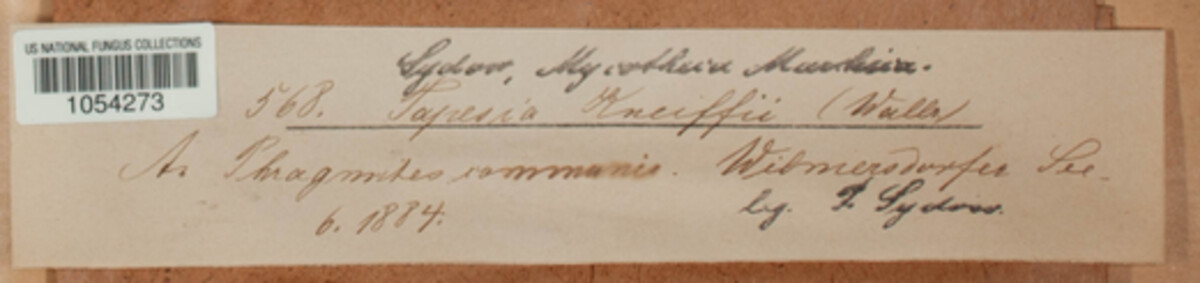 US NATIONAL FUNGUS COLLECTIONS
1054273
Sydow, Mycotheca Marchica.
568. Tapesia Kneiffii (Wallr)
An Phragmites communis. Wilmersdorfer See.
6. 1884. leg. P. Sydow.